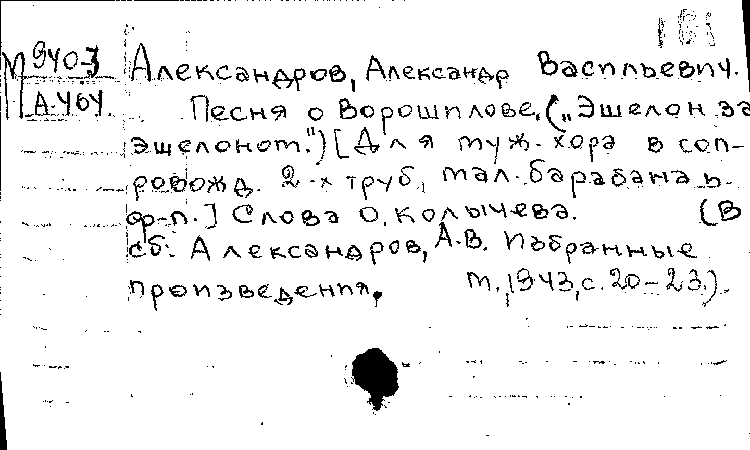 М 940-3 Александров, Александр Васильевич.
А.464 Песня о Ворошилове. („Эшелон за
эшелоном.") [Для муж. хора в соп-
ровожд. 2-х труб, мал. барабана и
ф-п.] Слова О. Колычева. (В
сб: Александров, А.В. Избранные
произведения. М., 1943, с. 20-23.).